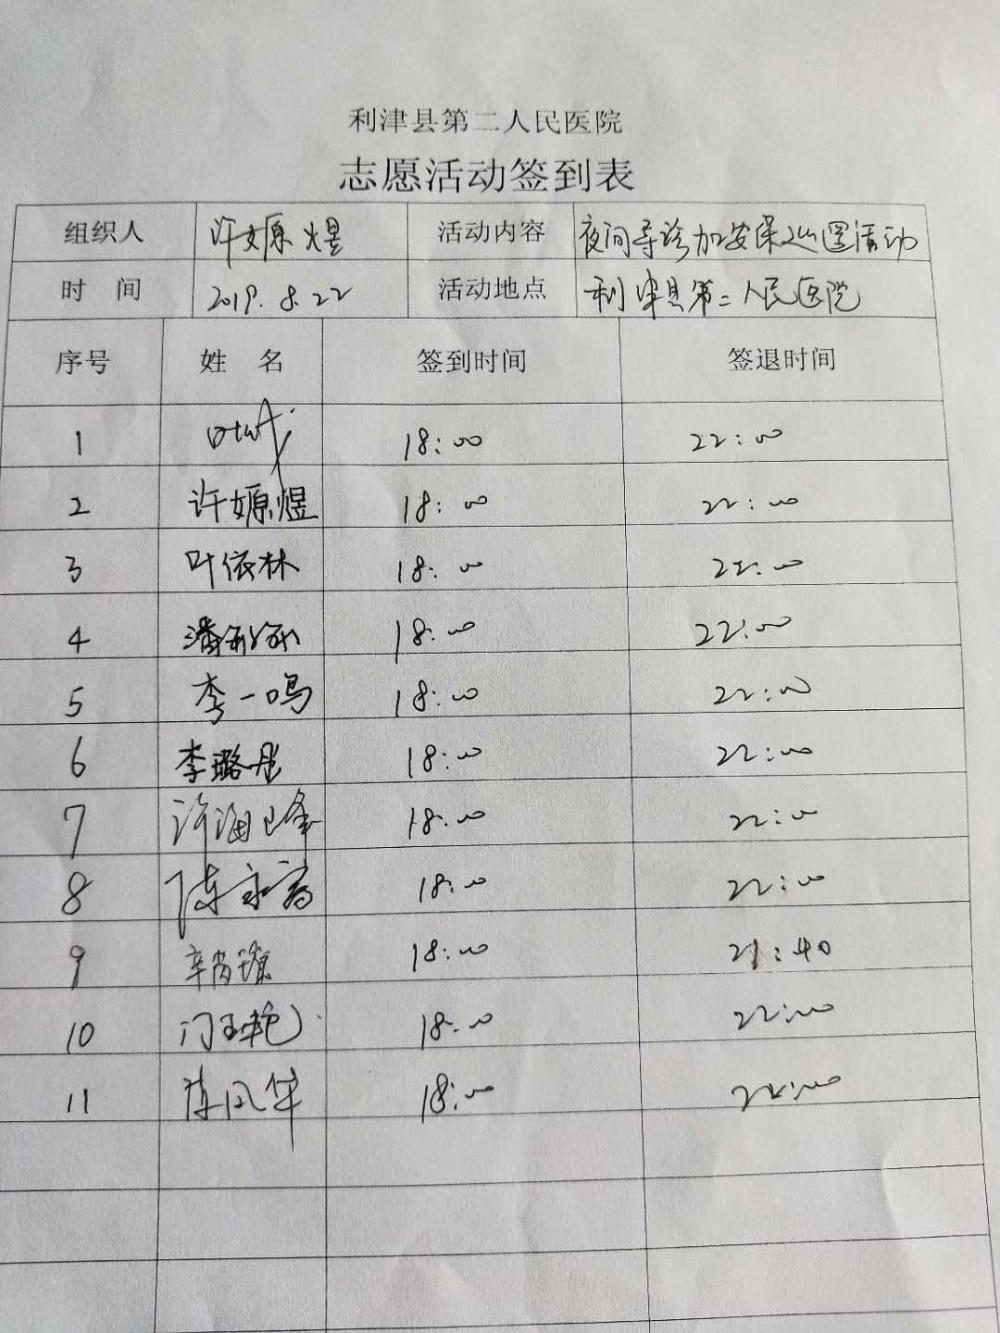 利津县第二人民医院
志愿活动签到表
组织人 许嫄煜 活动内容 夜间导诊加安保巡逻活动
时 间 2019.8.22 活动地点 利津县第二人民医院
序号 姓 名 签到时间 签退时间
1 18:00 22:00
2 许嫄煜 18:00 22:00
3 叶依林 18:00 22:00
4 潘 18:00 22:00
5 李一鸣 18:00 22:00
6 李璐彤 18:00 22:00
7 许海峰 18:00 22:00
8 陈永富 18:00 22:00
9 辛 18:00 21:40
10 门玉艳 18:00 22:00
11 陈风华 18:00 22:00